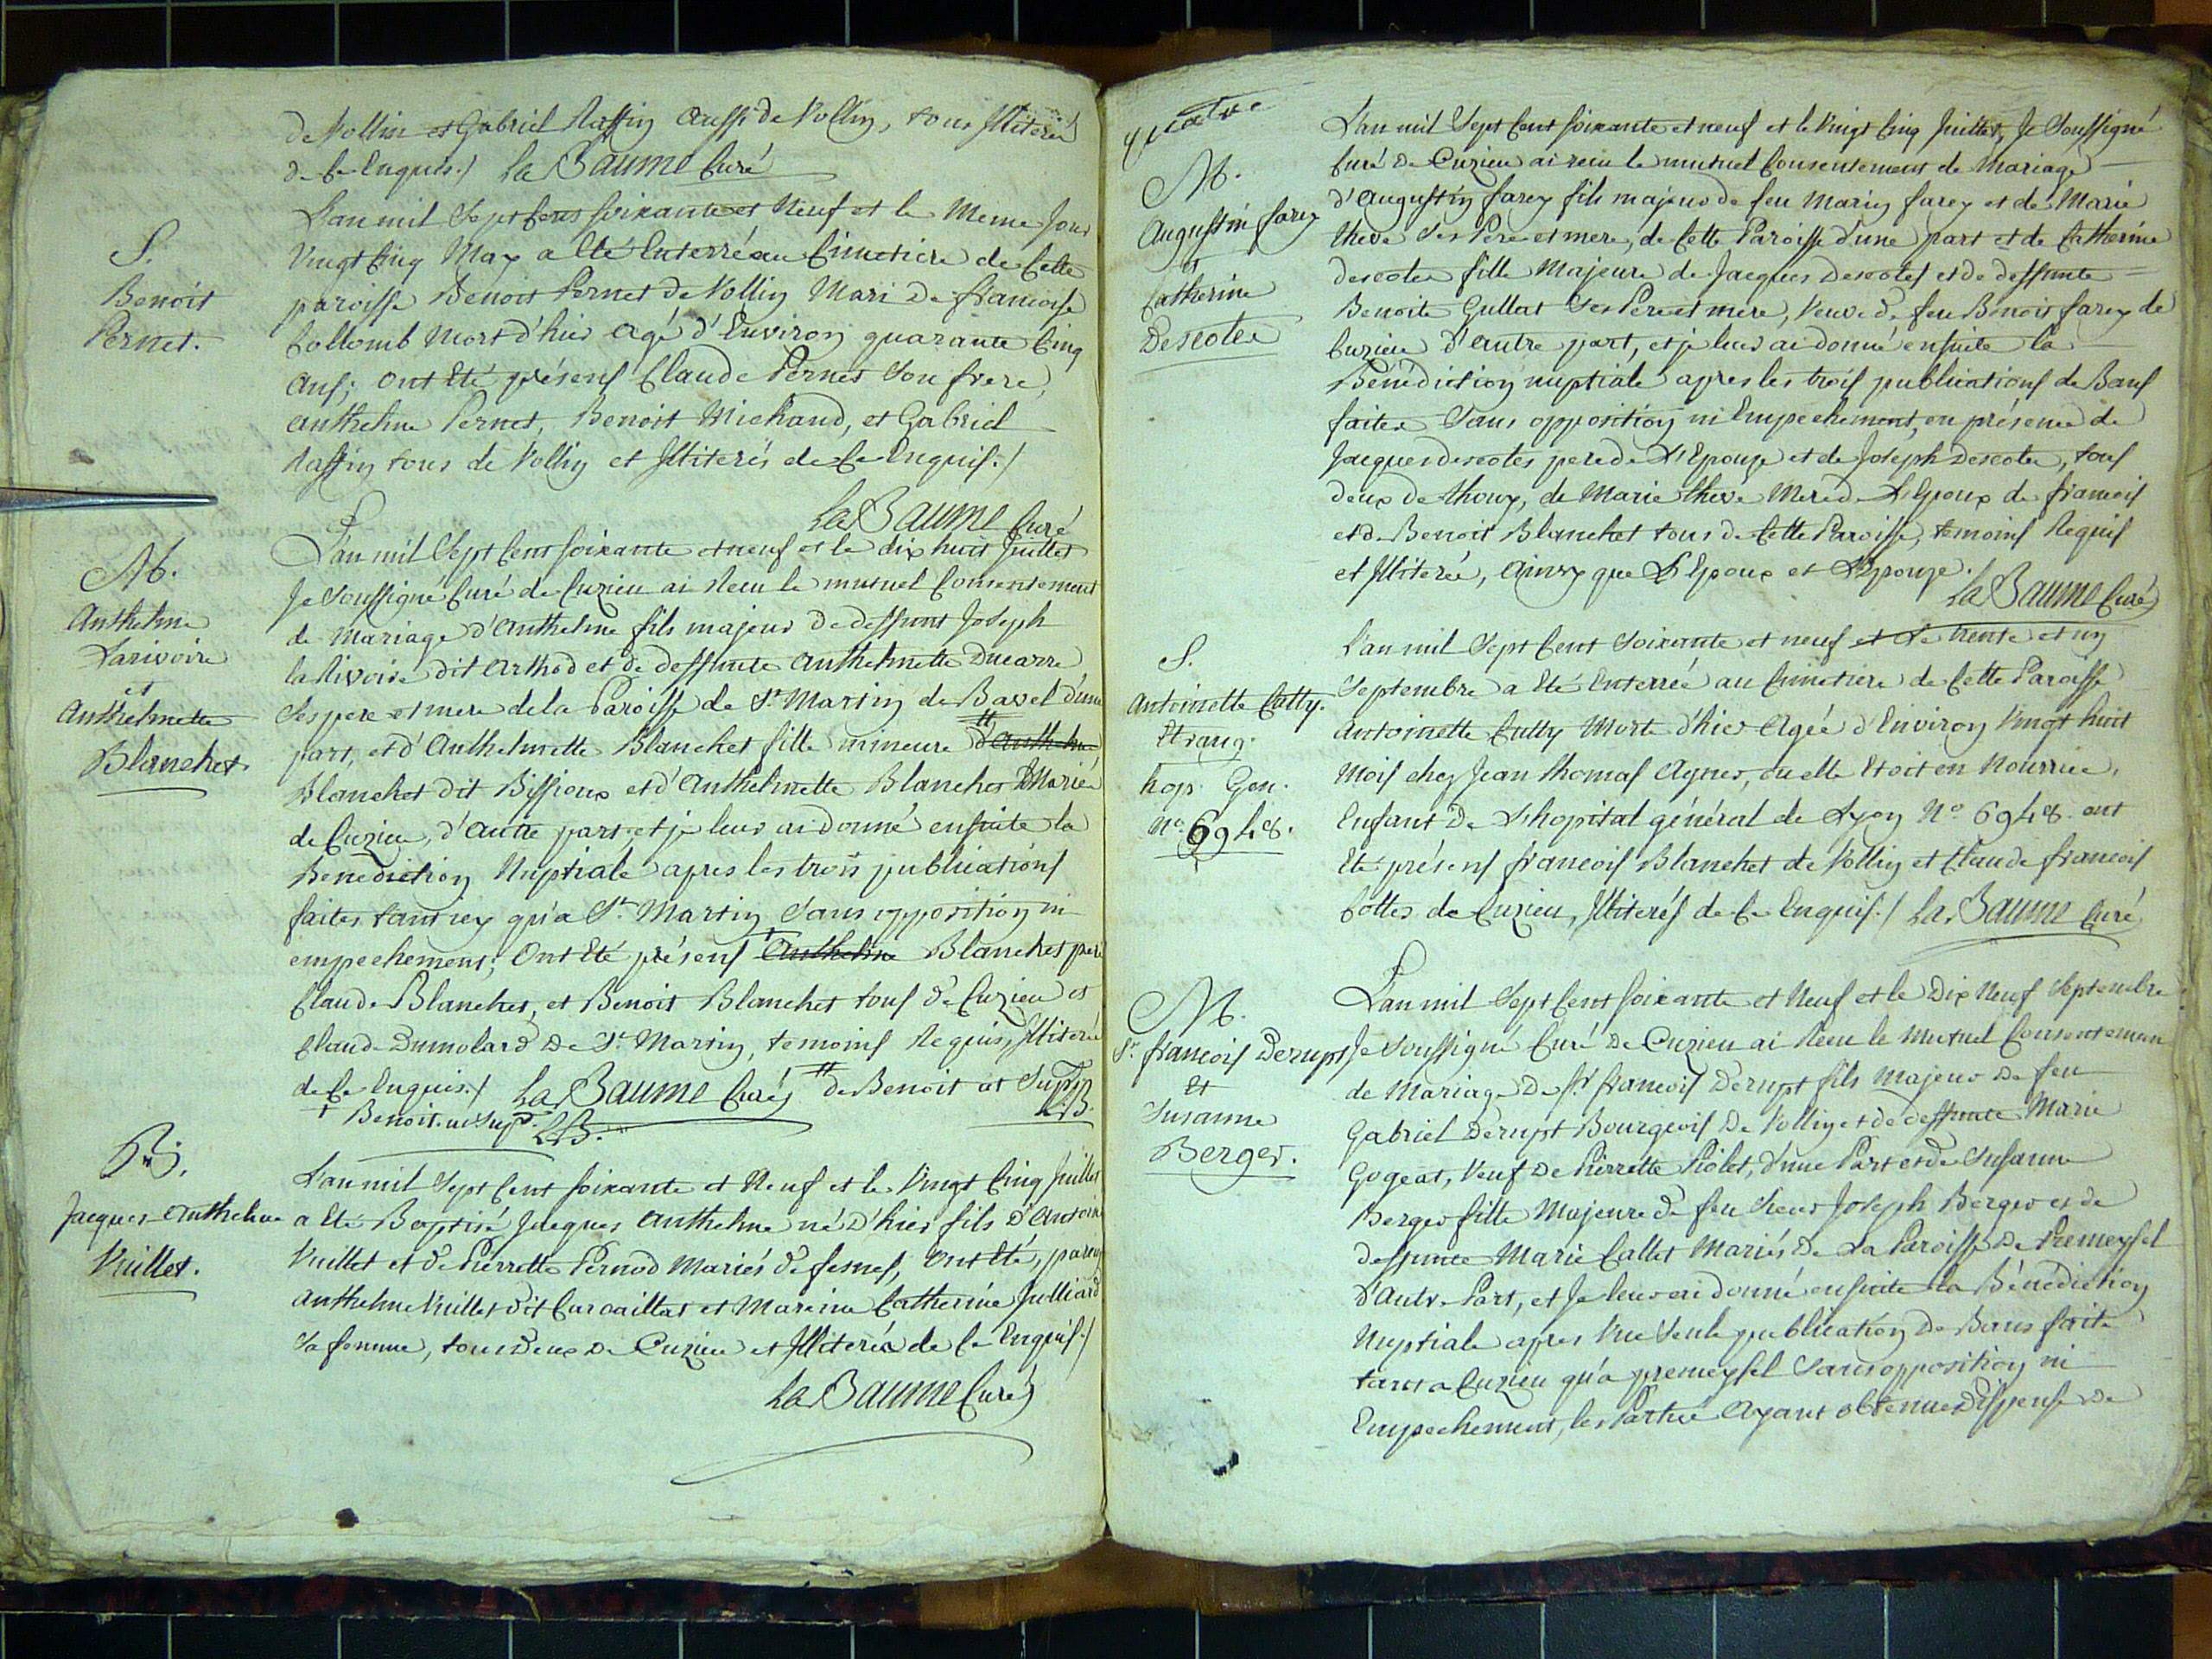 de Vollin et Gabriel Raffin aussi de Vollin, tous Illiterés
de ce Enquis./ La Baume Curé
S.
Benoit
Pernet.
L'an mil Sept Cens soixante et Neuf et le Meme Jour
Vingt Cinq May a Eté Enterré au Cimetiere de Cette
paroisse Benoit Pernet de Vollin Mari de francoise
Collomb Mort d'hier agé d'Environ quarante Cinq
ans; ont Eté présens Claude Pernet Son frere,
anthelme Pernet, Benoit Michaud, et Gabriel
Raffin tous de Vollin et Illiterés de Ce Enquis./
La Baume Curé
M.
Anthelme
Larivoire
et
Anthelmette
Blanchet.
L'an mil Sept Cent soixante et neuf et le dix huit Juillet
Je Soussigné Curé de Cuzieu ai Recu le mutuel Consentement
de Mariage d'Anthelme fils majeur de deffunt Joseph
la Rivoire dit Arthod et de deffunte Anthelmette Ducarre
Ses pere et mere de la Paroisse de St Martin de Bavel d'une
part, et d'Anthelmette Blanchet fille mineure d'Anthelme
Blanchet dit Bissioux et d'Anthelmette Blanchet Mariés
de Cuzieu, d'autre part, et je leur ai donné ensuite la
Benediction Nuptiale apres les trois publications
faites tant icy qu'a St Martin Sans opposition ni
empechement; Ont Eté présens Anthelme Blanchet pere
Claude Blanchet, et Benoit Blanchet tous de Cuzieu et
Claude Dumolard de St Martin, temoins Requis, Illiterés
de Ce Enquis./ La Baume Curé # de Benoit ut Supra
+ Benoit ut Supra LB. LB.
B.
Jacques Anthelme
Vuillet.
L'an mil Sept Cent soixante et Neuf et le Vingt Cinq Juillet
a Eté Baptisé Jacques Anthelme né D'hier fils D'Antoine
Vuillet et de Pierrette Pernod Mariés de fesnes, Ont Eté, parein
Anthelme Vuillet dit Carcaillat et Mareine Catherine Julliard
Sa femme, tous Deux de Cuzieu et Illiterés de Ce Enquis./
La Baume Curé
quatre
M.
Augustin farey
et
Catherine
Descotes
L'an mil Sept Cent soixante et neuf et le Vingt Cinq Juillet, Je Soussigné
Curé de Cuzieu ai recu le mutuel Consentement de Mariage
d'Augustin farey fils majeur de feu Marin farey et de Marie
theve Ses Pere et mere, de Cette Paroisse d'une part et de Catherine
descotes fille Majeure de Jacques Descotes et de deffunte
Benoite Gullat Ses Pere et mere, Veuve de feu Benoit farey de
Cuzieu d'autre part, et je leur ai donné ensuite la
Bénédiction nuptiale apres les trois publications de Bans
faites Sans opposition ni Empechement, en présence de
Jacques descotes pere de L'Epouse et de Joseph Descotes, tous
deux de thouy, de Marie theve Mere de L'Epoux de francois
et de Benoit Blanchet tous de Cette Paroisse, temoins Requis
et Illiterés, ainsy que L'Epoux et L'Epouze.
La Baume Curé
S.
Antoinette Catty.
Etrang.
hop. Gen.
No. 6948.
L'an mil Sept Cent Soixante et neuf et Le trente et un
Septembre a Eté Enterrée au Cimetiere de Cette Paroisse
Antoinette Catty Morte d'hier Agée d'Environ Vingt huit
Mois chez Jean thomas Aynes, ou elle Etoit en Nourrice,
Enfant de L'hopital général de Lyon No. 6948. ont
Eté présens francois Blanchet de Vollin et Claude francois
Cottes de Cuzieu, Illiterés de Ce Enquis./ La Baume Curé
M.
Sr. francois Derupt
Et
Susanne
Berger.
L'an mil Sept Cent soixante et Neuf et le Dix Neuf Septembre
Je Soussigné Curé de Cuzieu ai Recu le Mutuel Consentement
de Mariage De Sr. francois Derupt fils Majeur de feu
Gabriel Derupt Bourgeois De Vollin et de deffunte Marie
Gogeat, Veuf De Pierrette Piolet, d'une Part et de Susanne
Berger fille Majeure de feu Sieur Joseph Berger et de
deffunte Marie Callet Mariés De La Paroisse de Premeysel
d'Autre Part, et Je leur ai donné ensuite la Bénédiction
Nuptiale apres Une Seule publication De Bans faite
tant a Cuzieu qu'a premeysel Sans opposition ni
Empechement, les Parties Ayant obtenues dispense de